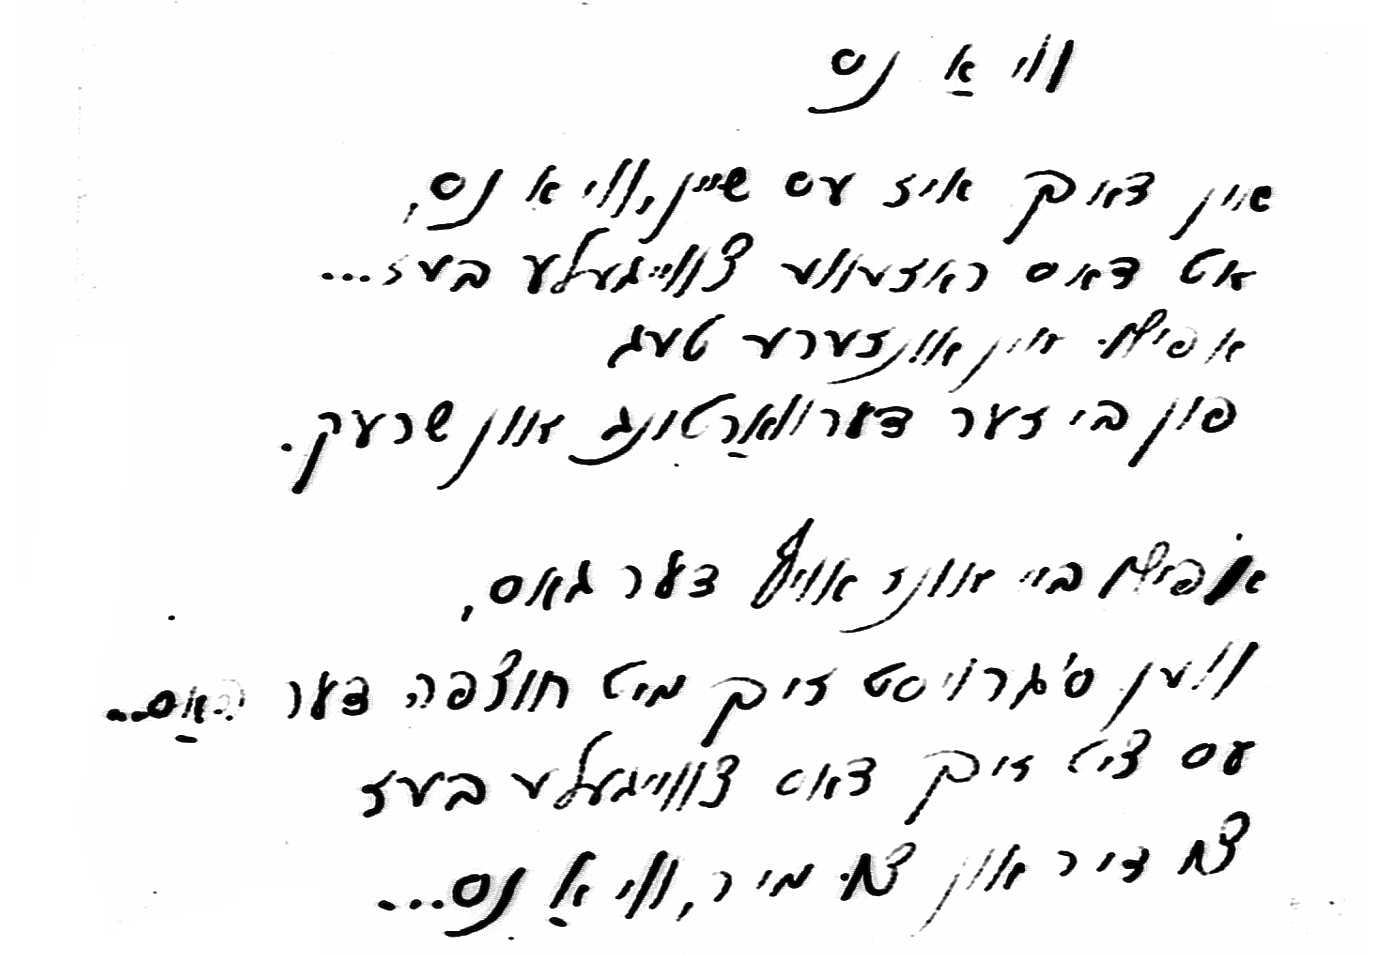 ווי אַ נס
שוין דאך איז עס שיין, ווי א נס,
אט דאס ראזעווע צווייגעלע בעז...
אפילו אין אונזערע טעג
פון ביזער דערוואַרטונג און שרעק.
אפילו ביי אונז אויף דער גאס,
ווען ס'גרויסט זיך מיט חוצפה דער האַס...
עס ציט זיך דאס צווייגעלע בעז
צו דיר און צו מיר, ווי אַ נס...